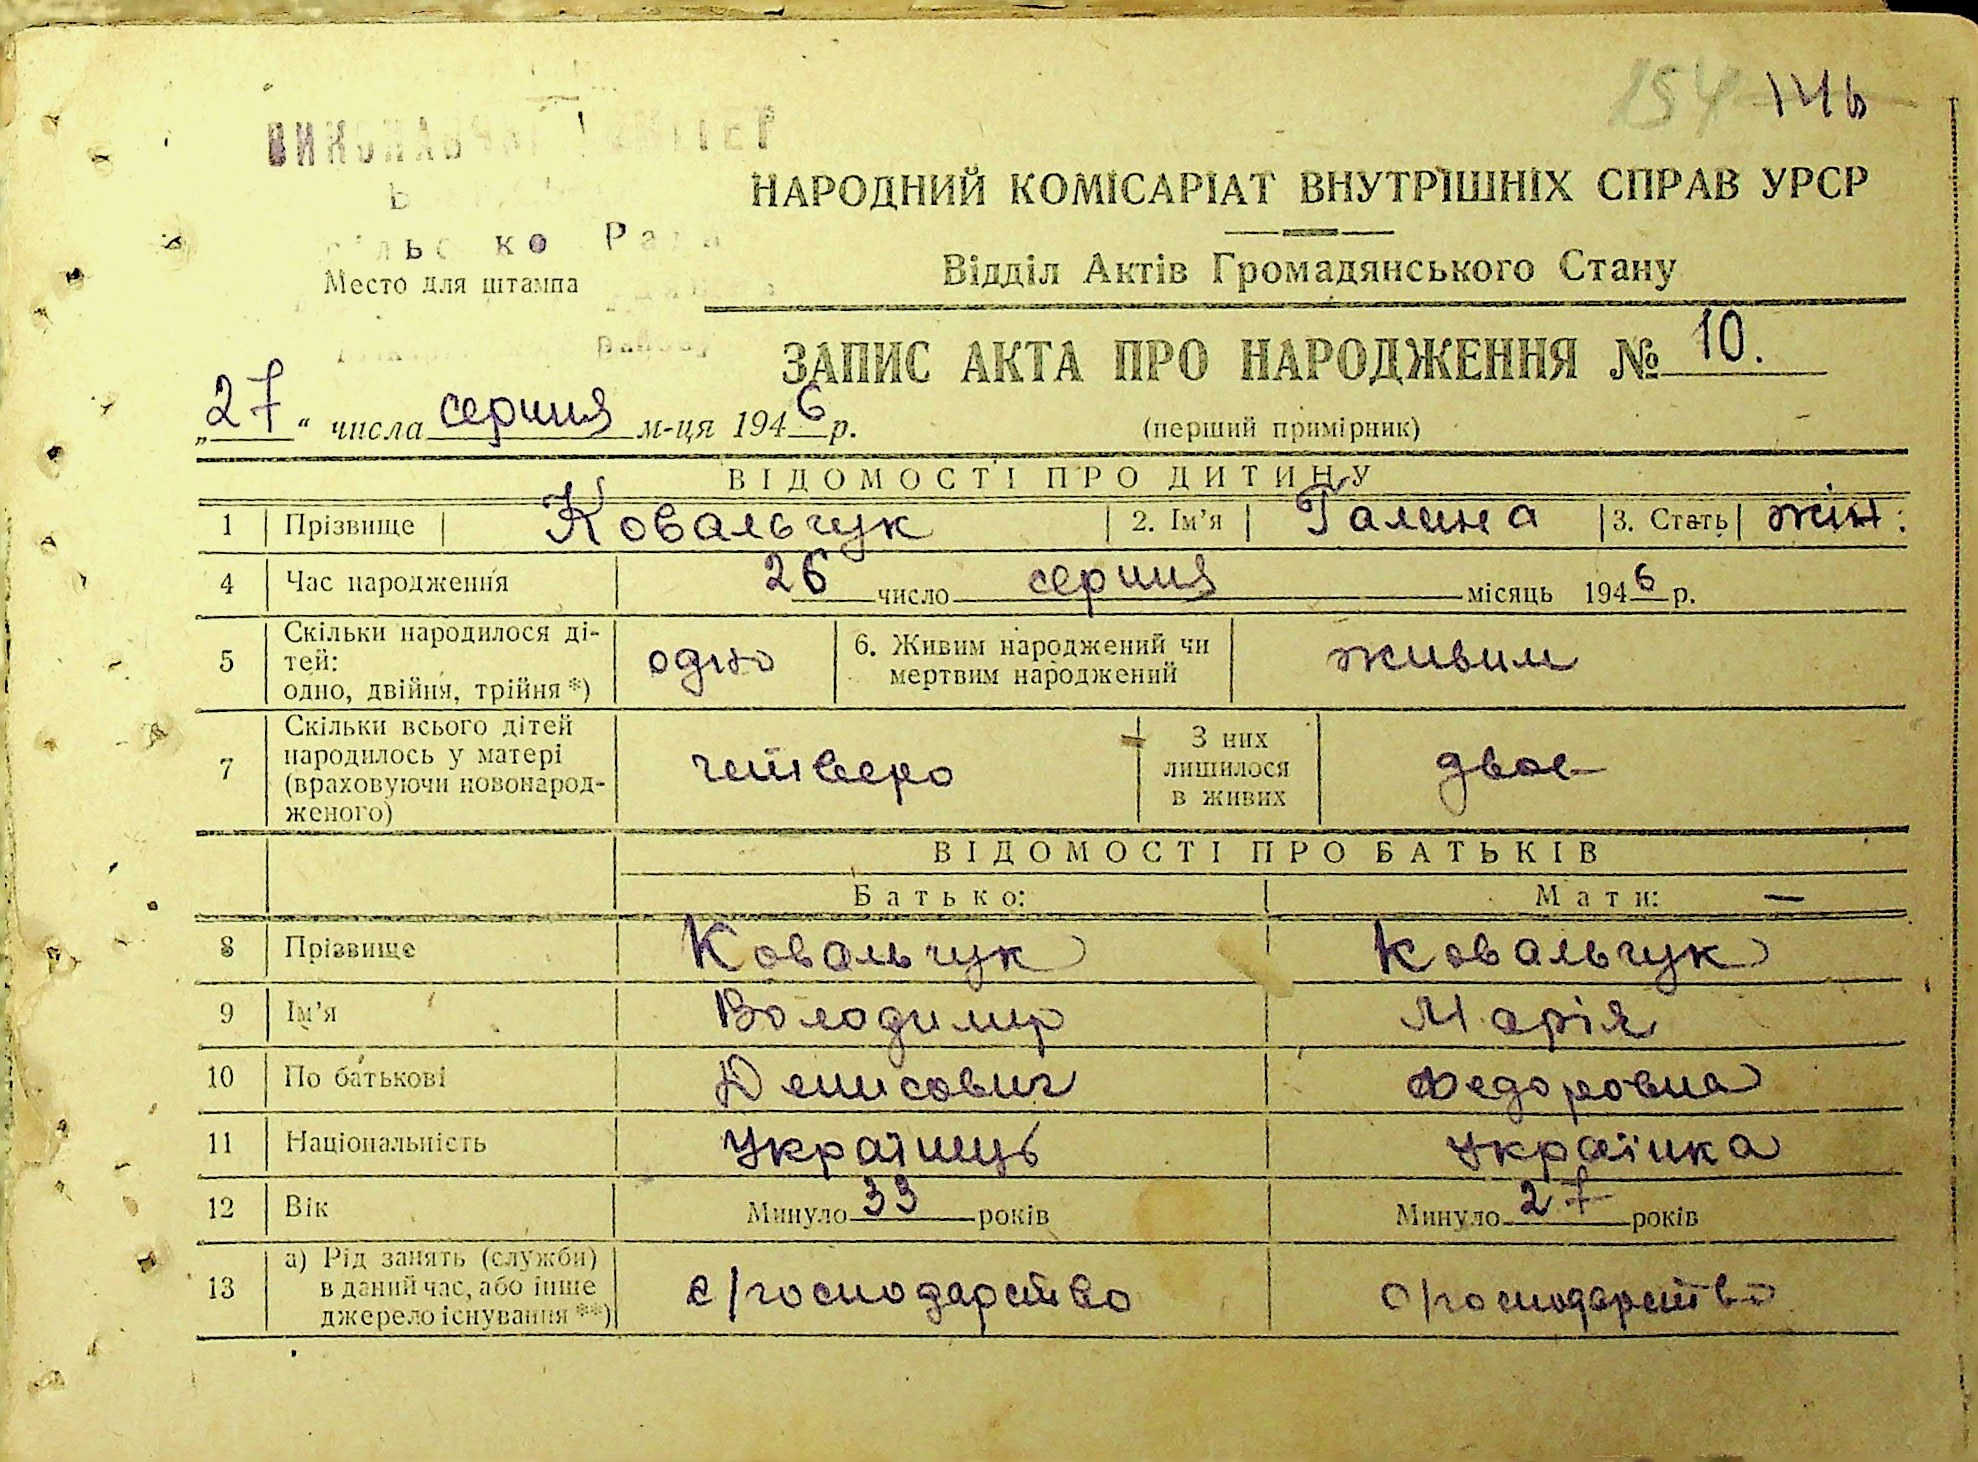 154 146
НАРОДНИЙ КОМІСАРІАТ ВНУТРІШНІХ СПРАВ УРСР
Ради
Відділ Актів Громадянського Стану
Место для штампа
ЗАПИС АКТА ПРО НАРОДЖЕННЯ № 10.
„27“ числа серпня м-ця 1946 р.
(перший примірник)
ВІДОМОСТІ ПРО ДИТИНУ
1 Прізвище Ковальчук 2. Ім’я Галина 3. Стать жін.
4 Час народження 26 число серпня місяць 1946 р.
5 Скільки народилося ді-
тей:
одно, двійня, трійня *) одно 6. Живим народжений чи
мертвим народжений живим
7 Скільки всього дітей
народилось у матері
(враховуючи новонарод-
женого) четверо З них
лишилося
в живих двоє
ВІДОМОСТІ ПРО БАТЬКІВ
Батько: Мати:
8 Прізвище Ковальчук Ковальчук
9 Ім’я Володимир Марія
10 По батькові Денисович Федоровна
11 Національність Українець Українка
12 Вік Минуло 33 років Минуло 27 років
13 а) Рід занять (служби)
в даний час, або інше
джерело існування **) с/господарство с/господарство